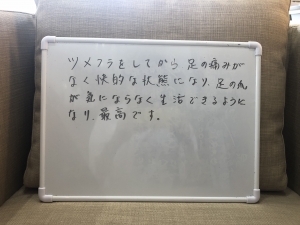 ツメフラをしてから足の痛みが
なく快的な状態になり、足の爪
が気にならなく生活できるように
なり、最高です。